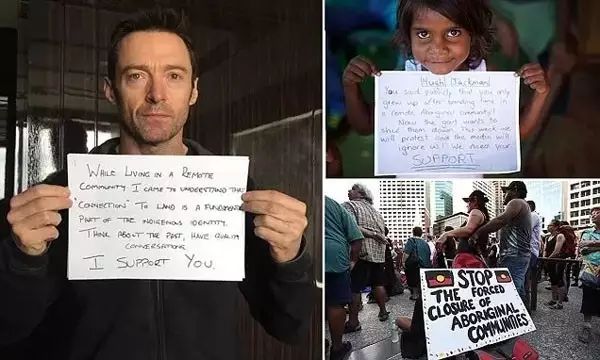 WHILE LIVING IN A REMOTE
COMMUNITY I CAME TO UNDERSTAND THAT
"CONNECTION" TO LAND IS A FUNDAMENTAL
PART OF THE INDIGENOUS IDENTITY.
THINK ABOUT THE PAST, HAVE QUALITY
CONVERSATIONS
I SUPPORT YOU.
Hugh Jackman!
You said publicly that you only
grew up after spending time in
a remote Aboriginal community!
Now the govt wants to
shut them down. This week we
will protest and the media will
ignore us! We need your
SUPPORT
STOP
THE FORCED
CLOSURE OF
ABORIGINAL
COMMUNITIES